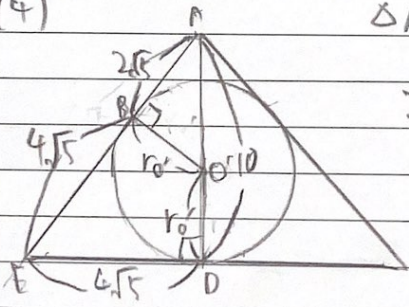 (4)
A
△
2√5
B
4√5
r₀'
O'
10
r₀'
E
4√5
D